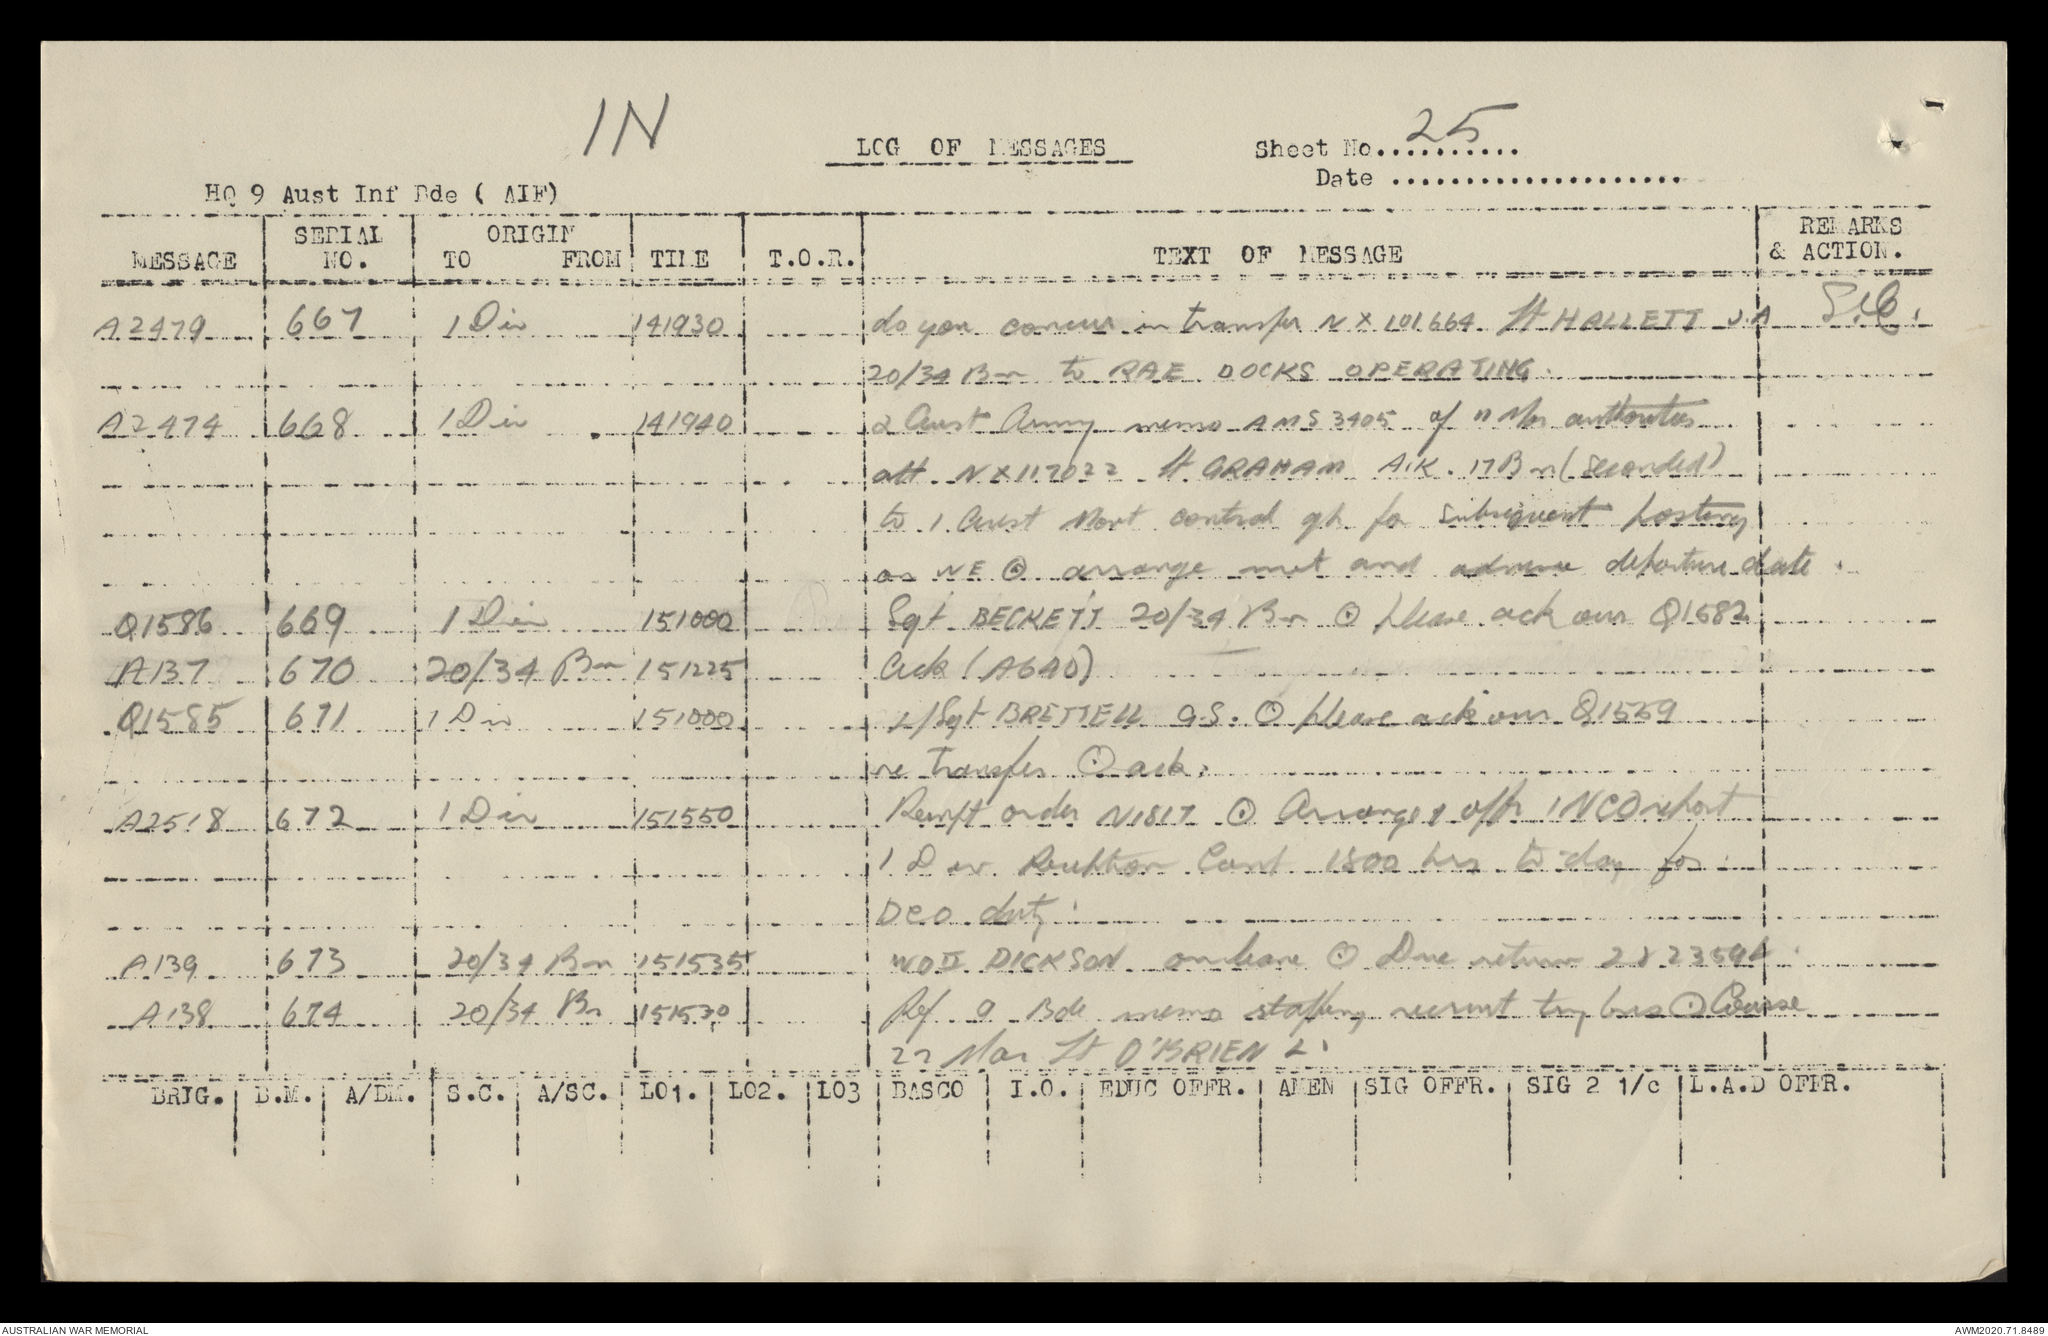 IN
LOG OF MESSAGES
Sheet No. 25
Date ....................
HQ 9 Aust Inf Bde ( AIF)
MESSAGE SERIAL NO. ORIGIN TO FROM TIME T.O.R. TEXT OF MESSAGE REMARKS & ACTION.
A2479 667 1 Div 141930 do you concur in transfer NX101664 Lt HALLETT J.A S.C.
20/34 Bn to RAE DOCKS OPERATING.
A2474 668 1 Div 141940 2 Aust Army memo AMS 3405 of 11 Mar authorites
att NX117022 Lt GRAHAM A.K. 17 Bn (seconded)
to 1 Aust Movt control gp for subsequent posting
on WE ⊙ arrange mvt and advise departure date.
Q1586 669 1 Div 151000 Sgt BECKETT 20/34 Bn ⊙ please ack our Q1582
A137 670 20/34 Bn 151225 Ack (A640)
Q1585 671 1 Div 151000 L/Sgt BRETTELL G.S. ⊙ please ack our Q1559
re transfer ⊙ ack.
A2518 672 1 Div 151550 Reinft order N1817 ⊙ Arrange 1 offr 1 NCO report
1 Div Reception Camp 1800 hrs to-day for
DCO duty.
A139 673 20/34 Bn 151535 WOII DICKSON on leave ⊙ Due return 282359L.
A138 674 20/34 Bn 151530 Ref 9 Bde memo staffing recruit trg bns ⊙ Course
22 Mar Lt O'BRIEN L.
BRIG. B.M. A/BM. S.C. A/SC. LO1. LO2. LO3 BASCO I.O. EDUC OFFR. AMEN SIG OFFR. SIG 2 1/c L.A.D OFFR.
AUSTRALIAN WAR MEMORIAL
AWM2020.71.8489